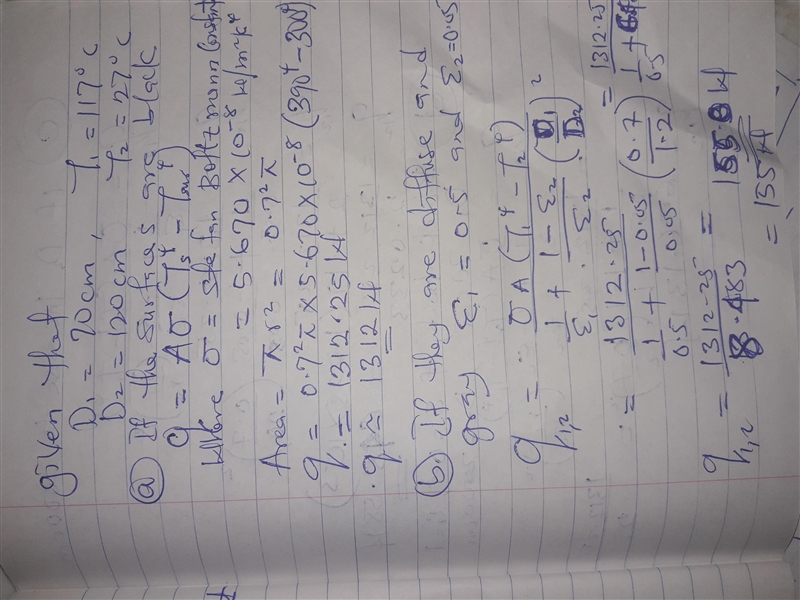 given that
D₁ = 70cm, T₁ = 117°C
D₂ = 120cm T₂ = 27°C
(a) If the surfaces are black
q = Aσ(Ts⁴ - Tsur⁴)
where σ = Stefan Boltzmann Constant
= 5.670 × 10⁻⁸ W/m²K⁴
Area = πr² = 0.7²π
q = 0.7²π × 5.670 × 10⁻⁸ (390⁴ - 300⁴)
q = 1312.25 W
q = 1312 W
(b) If they are diffuse and
gray ε₁ = 0.5 and ε₂ = 0.05
q₁,₂ = σA(T₁⁴ - T₂⁴) / (1/ε₁ + (1 - ε₂)/ε₂ · (D₁/D₂)²)
= 1312.25 / (1/0.5 + (1 - 0.05)/0.05 (0.7/1.2)) = 1312.25
q₁,₂ = 1312.25 / 8.483 = 155 W
= 155 W